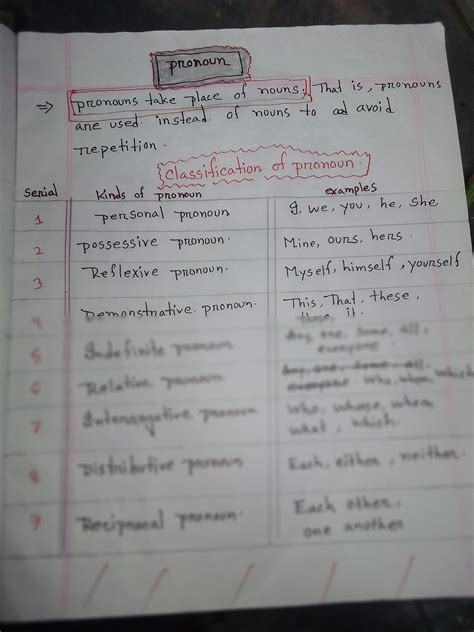 pronoun
⇒ pronouns take place of nouns. That is, pronouns
are used instead of nouns to avoid
repetition.
Classification of pronoun.
Serial Kinds of pronoun examples
1 personal pronoun I, we, you, he, She
2 possessive pronoun. Mine, ours, hers.
3 Reflexive pronoun. Myself, himself, yourself
4 Demonstrative pronoun. This, That, these,
those, it.
5 Indefinite pronoun Any, one, Some, all,
everyone
6 Relative pronoun Any, one, Some, all
everyone Who, whom, which
7 Interrogative pronoun Who, whose, whom
what, which
8 Distributive pronoun Each, either, neither.
9 Reciprocal pronoun. Each other,
one another